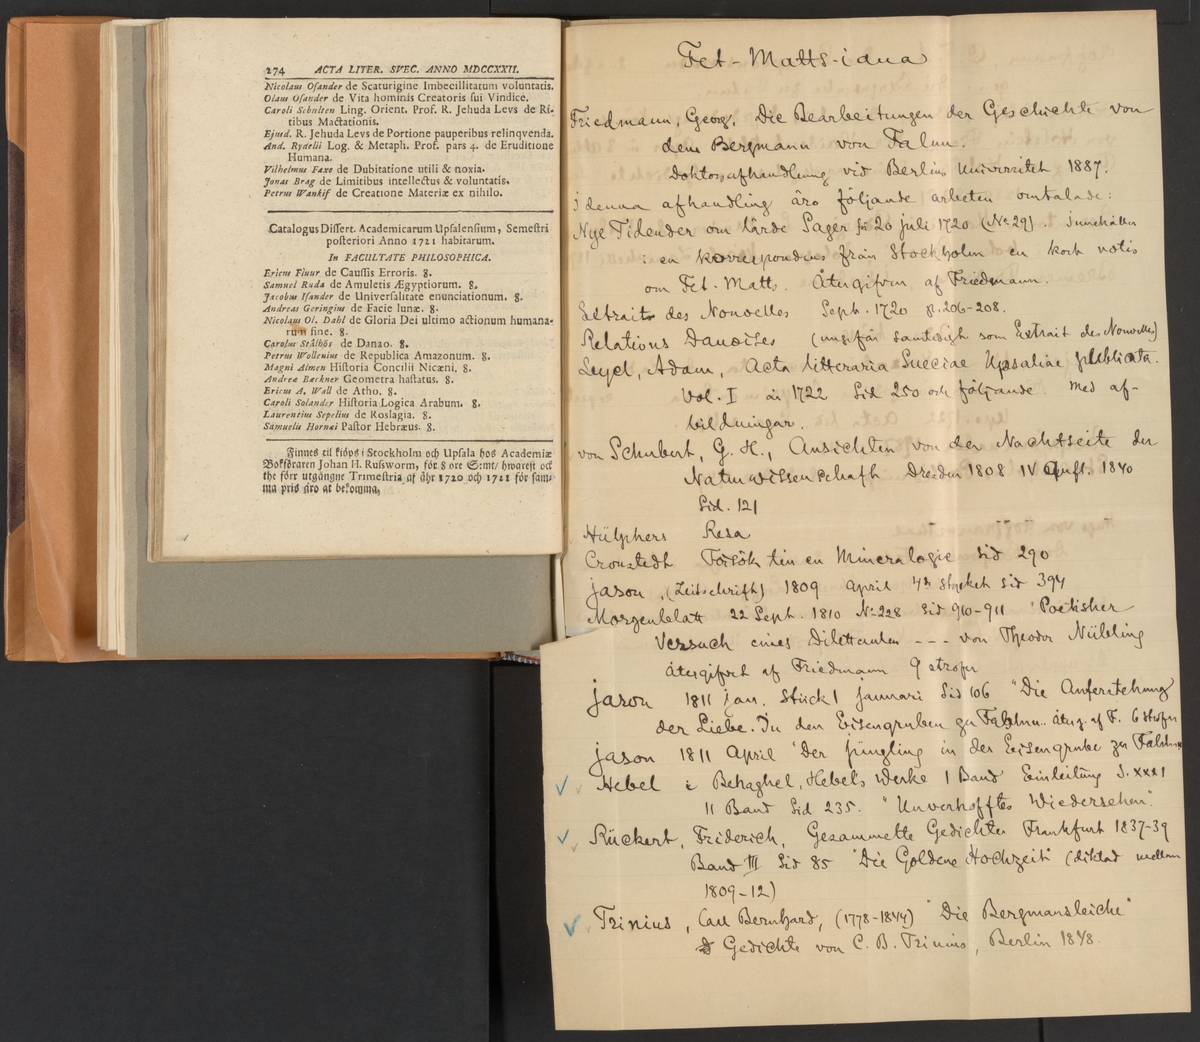 274 ACTA LITER. SVEC. ANNO MDCCXXII.
Nicolaus Osander de Scaturigine Imbecillitatum voluntatis.
Olaus Osander de Vita hominis Creatoris sui Vindice.
Caroli Schulten Ling. Orient. Prof. R. Jehuda Levs de Ri-
tibus Mactationis.
Ejusd. R. Jehuda Levs de Portione pauperibus relinqvenda.
And. Rydelii Log. & Metaph. Prof. pars 4. de Eruditione
Humana.
Vilhelmus Faxe de Dubitatione utili & noxia.
Jonas Brag de Limitibus intellectus & voluntatis.
Petrus Wankif de Creatione Materiæ ex nihilo.
Catalogus Dissert. Academicarum Upsalensium, Semestri
posteriori Anno 1721 habitarum.
In FACULTATE PHILOSOPHICA.
Ericus Fluur de Caussis Erroris. 8.
Samuel Ruda de Amuletis Ægyptiorum. 8.
Jacobus Isander de Universalitate enunciationum. 8.
Andreas Geringius de Facie lunæ. 8.
Nicolaus Ol. Dahl de Gloria Dei ultimo actionum humana-
rum fine. 8.
Carolus Stålhös de Danao. 8.
Petrus Wollenius de Republica Amazonum. 8.
Magni Almen Historia Concilii Nicæni. 8.
Andreæ Backner Geometra hastatus. 8.
Ericus A. Wall de Atho. 8.
Caroli Solander Historia Logica Arabum. 8.
Laurentius Sepelius de Roslagia. 8.
Samuelis Hornæi Pastor Hebræus. 8.
Finnes til kiöps i Stockholm och Upsala hos Academiæ
Bokföraren Johan H. Rusworm, för 8 öre S:mt/ hwarest ock
the förr utgångne Trimestria af åhr 1720 och 1721 för sam-
ma pris äro at bekomma,
Fet-Matts-iana
Friedmann, Georg. Die Bearbeitungen der Geschichte von
dem Bergmann von Falun.
Doktorsafhandlung vid Berlins Universitet 1887.
I denna afhandling äro följande arbeten omtalade:
Nye Tidender om lärde Sager för 20 juli 1720 (No 29). Innehåller
: en korrespondens från Stockholm en kort notis
om Fet-Matts. Återgifven af Friedmann.
Extrait des Nouvelles Sept. 1720 p. 206-208.
Relations Danoises (ungefär samtidigt som Extrait des Nouvelles)
Leyel, Adam, Acta litteraria Sueciae Upsaliae publicata.
Vol. I år 1722 Sid 250 och följande. Med af-
bildningar.
von Schubert, G. H., Ansichten von der Nachtseite der
Naturwissenschaft Dresden 1808 IV Aufl. 1840
Sid. 121
Hülphers Resa
Cronstedt Försök till en Mineralogie Sid 290
Jason, (Zeitschrift) 1809 April 4de stycket Sid 394
Morgenblatt 22 Sept. 1810 No 228 Sid 910-911 "Poetisher
Versuch eines Dilettanten --- von Theodor Nübling
återgifvet af Friedmann 9 strofer
Jason 1811 Jan. Stück 1 Januari Sid 106 "Die Auferstehung
der Liebe. In den Eisengruben zu Fahlun.. återg. af F. 6 strofer
Jason 1811 April "Der Jüngling in der Eisengrube zu Fahlun
Hebel i Behaghel, Hebels Werke I Band Einleitung S. XXXI
II Band Sid 235. "Unverhofftes Wiedersehen".
Rückert, Friderich, Gesammelte Gedichte Frankfurt 1837-39
Band III Sid 85 "Die Goldene Hochzeit" (diktad mellan
1809-12)
Trinius, Carl Bernhard, (1778-1844) "Die Bergmansleiche"
Gedichte von C. B. Trinius, Berlin 1848.